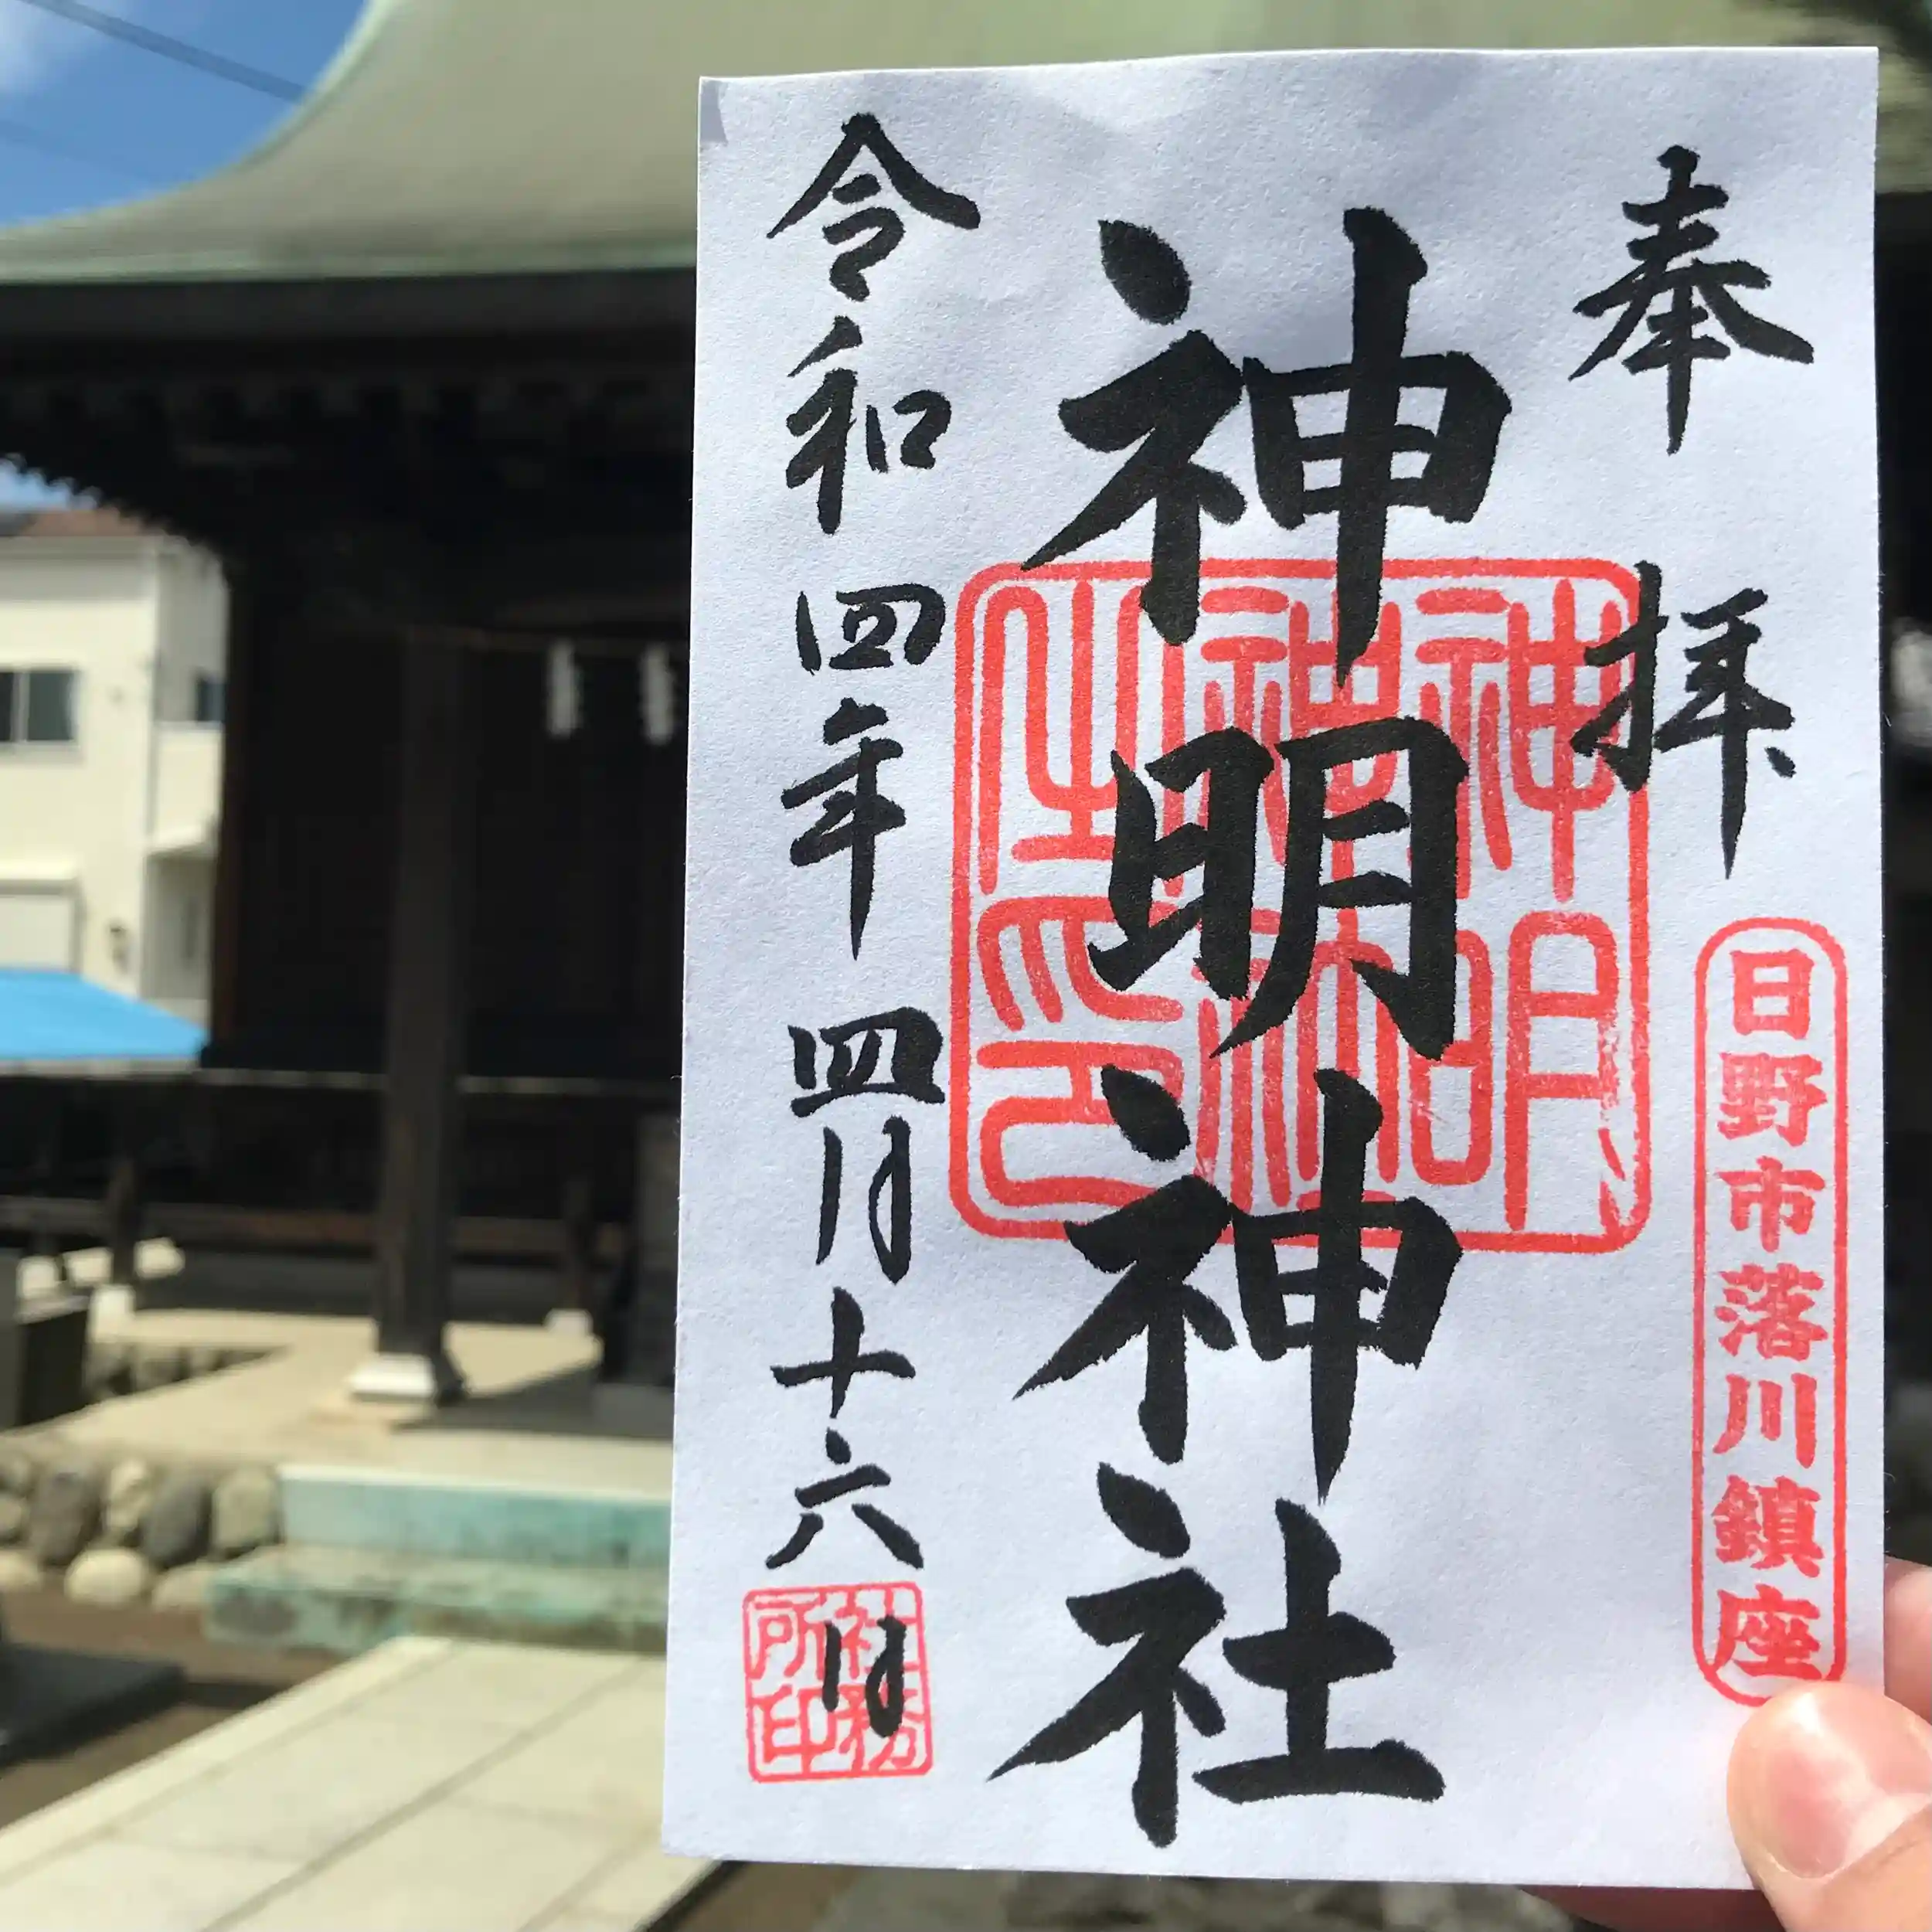 奉拝
日野市落川鎮座
神明神社
神明神社之印
令和四年四月十六日
社務所印